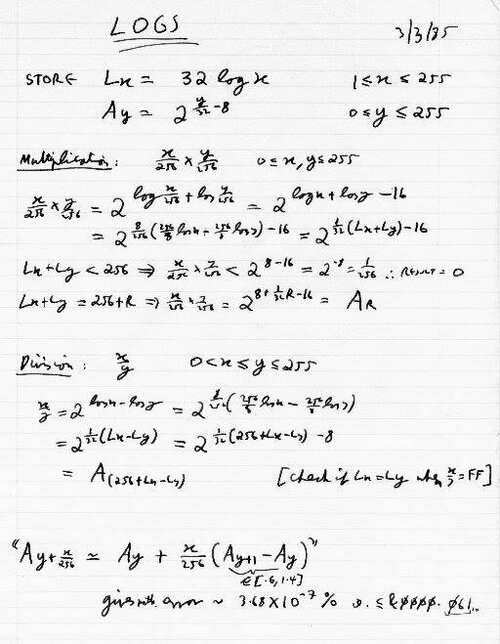 LOGS
3/3/85
STORE Lx = 32 log x 1 ≤ x ≤ 255
Ay = 2^(y/32 - 8) 0 ≤ y ≤ 255
Multiplication: x/256 × y/256 0 ≤ x, y ≤ 255
x/256 × y/256 = 2^(log x/256 + log y/256) = 2^(log x + log y - 16)
= 2^(8/256 (256/8 log x - 256/8 log y) - 16) = 2^(1/32 (Lx+Ly) - 16)
Lx+Ly < 256 ⇒ x/256 × y/256 < 2^(8-16) = 2^-8 = 1/256 ∴ Result = 0
Lx+Ly = 256+R ⇒ x/256 × y/256 = 2^(8 + 1/32 R - 16) = AR
Division: x/y 0 < x ≤ y ≤ 255
x/y = 2^(log x - log y) = 2^(8/256 (256/8 log x - 256/8 log y))
= 2^(1/32 (Lx-Ly)) = 2^(1/32 (256+Lx-Ly) - 8)
= A(256+Lx-Ly) [check if Lx=Ly when x/y = FF]
"Ay+x/256 ≃ Ay + x/256 (Ay+1 - Ay)"
∈[.6, 1.4]
gives error ~ 3.68×10^-7 %